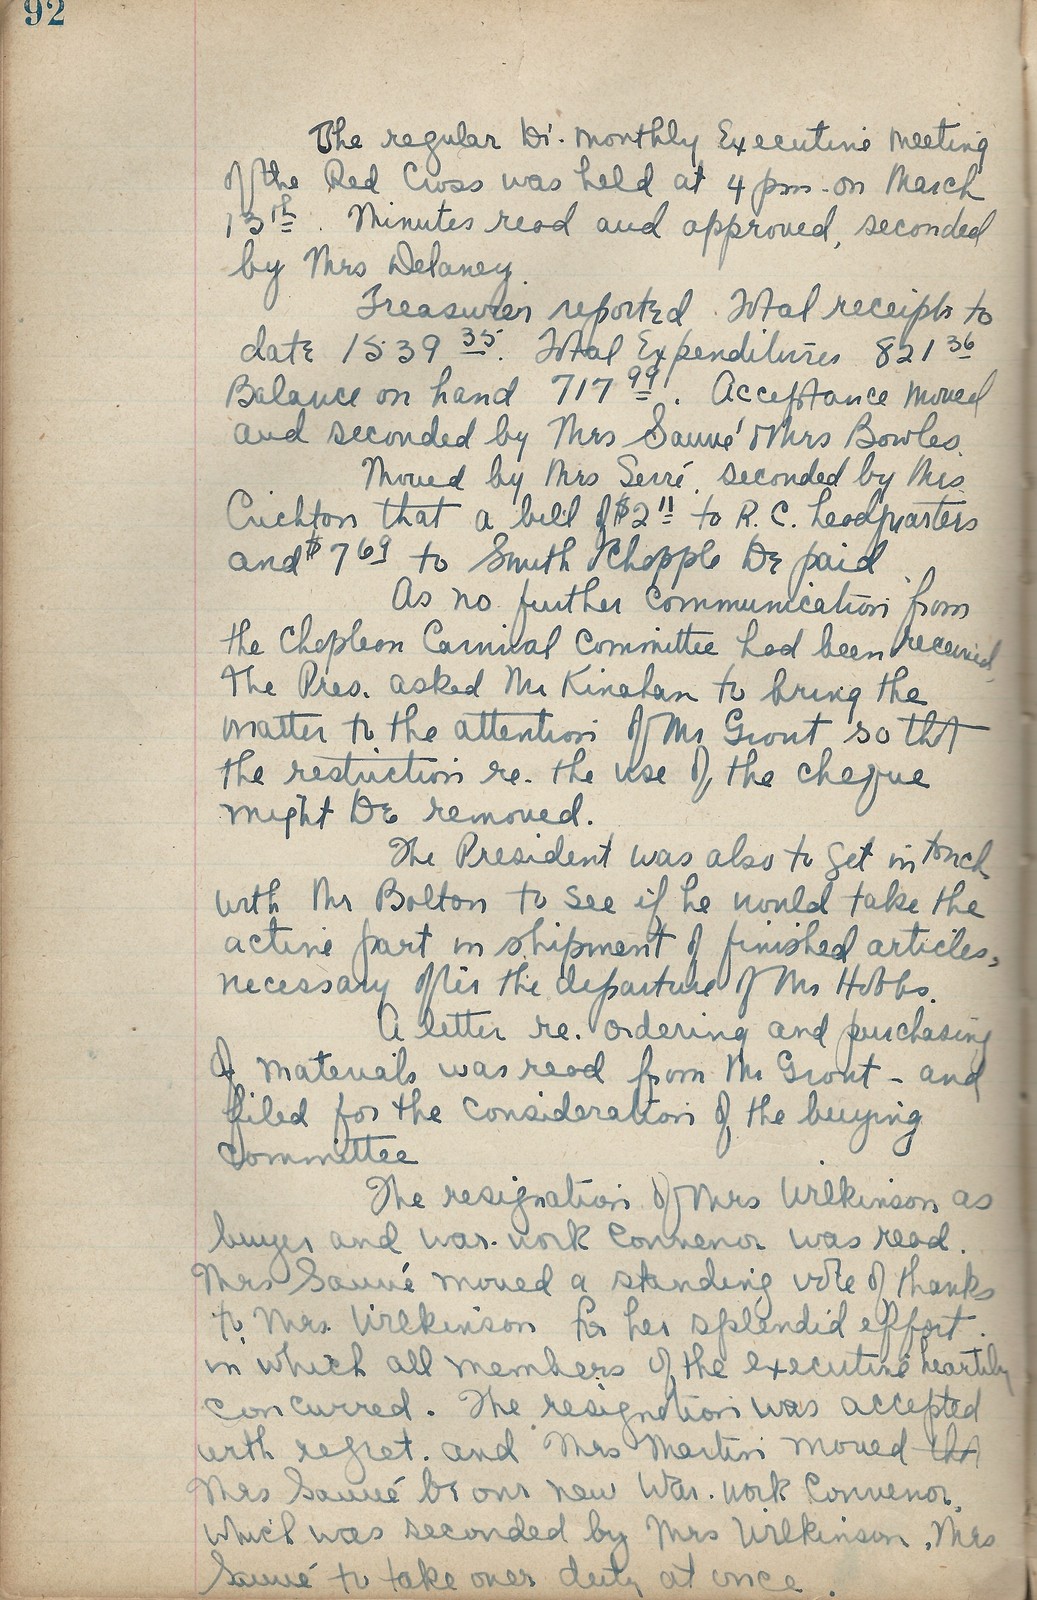 92
The regular Bi-monthly Executive Meeting
of the Red Cross was held at 4 pm. on March
13th. Minutes read and approved, seconded
by Mrs Delaney.
Treasurer reported. Total receipts to
date 1539 35. Total Expenditures 821 36
Balance on hand 717 99. Acceptance moved
and seconded by Mrs Sauvé & Mrs Bowles.
Moved by Mrs Serré, seconded by Mrs.
Crichton that a bill of $2 11 to R.C. headquarters
and $7 69 to Smith & Chapple be paid
As no further communication from
the Chapleau Carnival Committee had been received,
the Pres. asked Mr Kinahan to bring the
matter to the attention of Mr Grout so that
the restriction re. the use of the cheque
might be removed.
The President was also to get in touch
with Mr Bolton to see if he would take the
active part in shipment of finished articles,
necessary after the departure of Mr Hobbs.
A letter re. ordering and purchasing
of materials was read from Mr Grout - and
filed for the consideration of the buying
committee
The resignation of Mrs Wilkinson as
buyer and war-work Convenor was read.
Mrs Sauvé moved a standing vote of thanks
to Mrs. Wilkinson for her splendid effort.
in which all members of the executive heartily
concurred. The resignation was accepted
with regret. and Mrs Martin moved that
Mrs Sauvé be our new War-work Convenor,
which was seconded by Mrs Wilkinson. Mrs
Sauvé to take over duty at once.